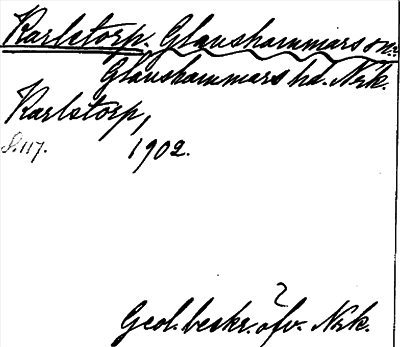 Karlstorp. Glanshammars sn.
Glanshammars hd. Nrk.
Karlstorp,
S. 117. 1902.
2
Geol. beskr. öfv. Nrk.